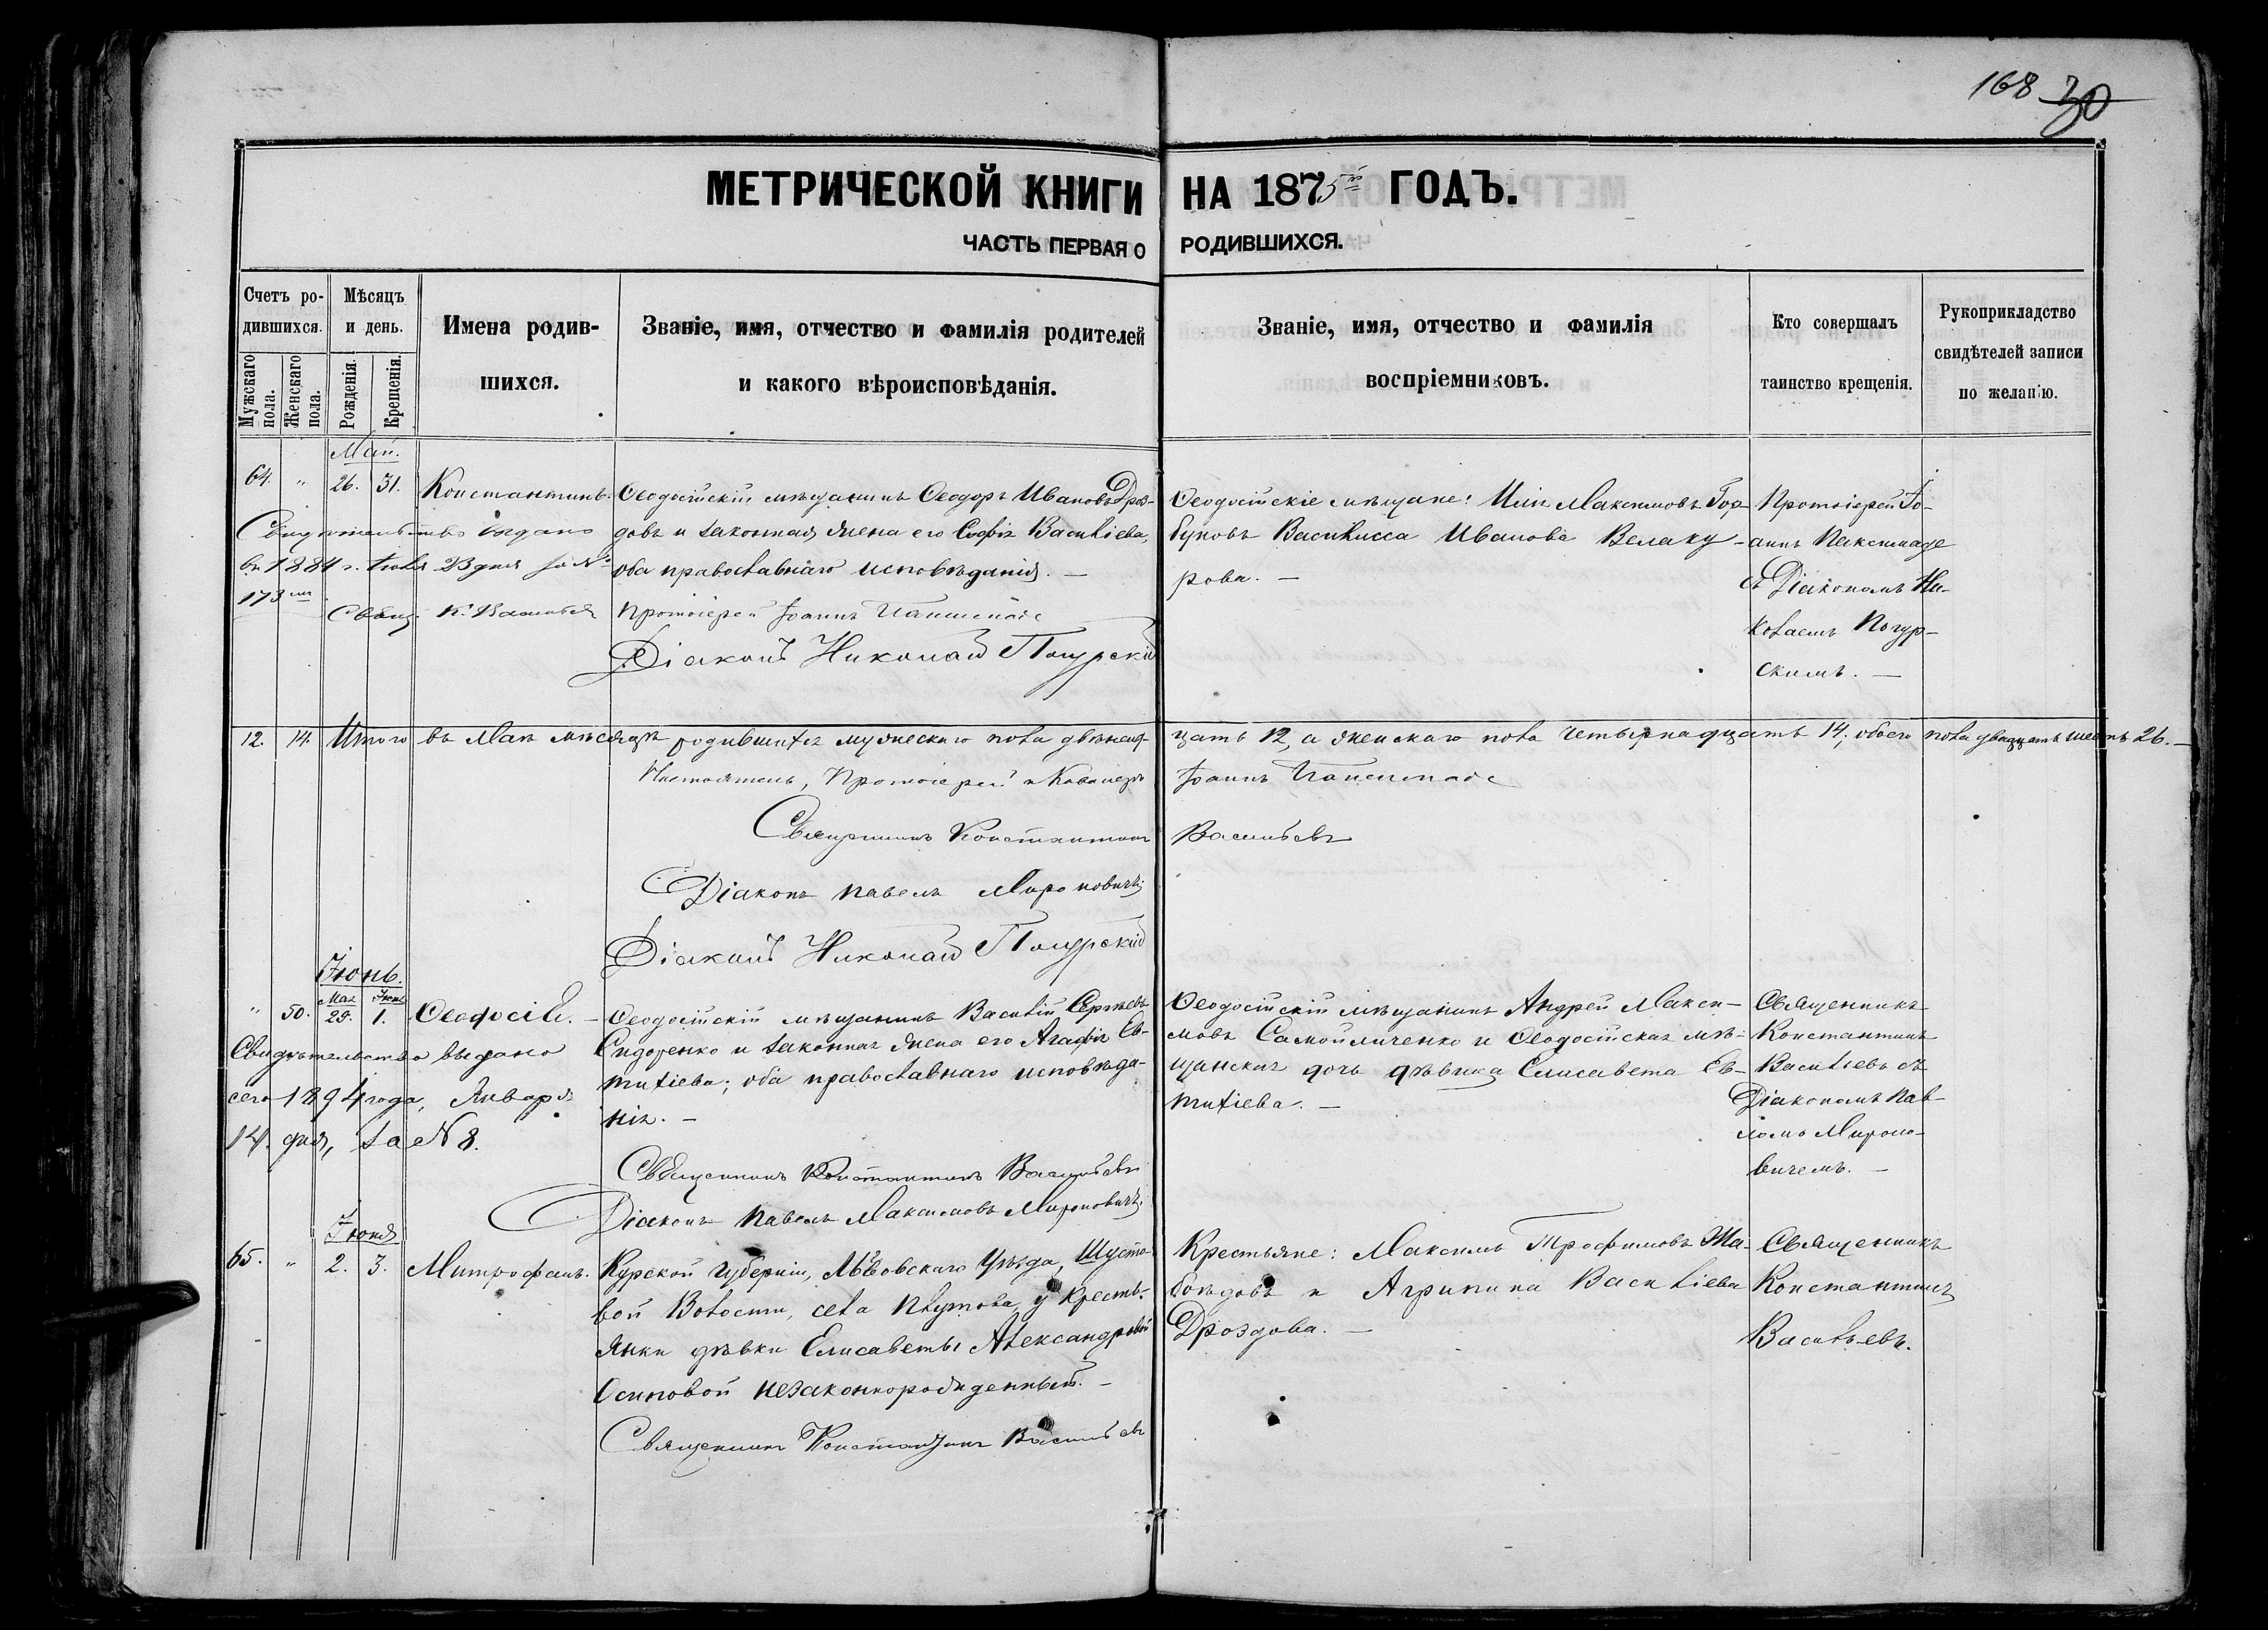 168 30
МЕТРИЧЕСКОЙ КНИГИ НА 1875й ГОДЪ.
ЧАСТЬ ПЕРВАЯ О РОДИВШИХСЯ.
Счетъ ро-
дившихся.
Мужскаго пола.
Женскаго пола.
Мѣсяцъ
и день.
Рожденія.
Крещенія.
Имена родив-
шихся.
Званіе, имя, отчество и фамилія родителей
и какого вѣроисповѣданія.
Званіе, имя, отчество и фамилія
воспріемниковъ.
Кто совершалъ
таинство крещенія.
Рукоприкладство
свидѣтелей записи
по желанію.
Май.
64. " 26. 31. Константинъ.
Свидѣтельство выдано
въ 1884 г. Іюля 23 дня за №
173 мъ
Свящ. К. Васильев
Ѳеодосійскій мѣщанинъ Ѳеодоръ Ивановъ Дроз-
довъ и законная жена его Софія Василіева,
оба православнаго исповѣданія. —
Протоіерей Іоаннъ
Діаконъ Николай Погурскій
Ѳеодосійскіе мѣщане: Илія Максимовъ Гор-
буновъ Василисса Иванова Велаку-
рова. —
Протоіерей Іо-
аннъ
съ Діакономъ Ни-
колаемъ Погур-
скимъ. —
12. 14. Итого въ Маѣ мѣсяцѣ родившихся мужескаго пола двѣнад-
цать 12, а женскаго пола четырнадцать 14; обоего пола двадцать шесть 26. —
Настоятель, Протоіерей и Кавалеръ Іоаннъ
Священникъ Константинъ Васильевъ
Діаконъ Павелъ Мироновичъ
Діаконъ Николай Погурскій
Іюнь.
Мая Іюня
" 50. 29. 1. Ѳеодосія. —
Свидѣтельство выдано
сего 1894 года, Января
14. дня, за № 8.
Ѳеодосійскій мѣщанинъ Василій Сергѣевъ
Сидоренко и законная жена его Агафія Ев-
тихіева; оба православнаго исповѣда-
нія. —
Священникъ Константинъ Васильевъ
Діаконъ Павелъ Максимовъ Мироновичъ.
Ѳеодосійскій мѣщанинъ Андрей Макси-
мовъ Самойличенко и Ѳеодосійская мѣ-
щанская дочь дѣвица Елисавета Ев-
тихіева. —
Священникъ
Константинъ
Василіевъ съ
Діакономъ Пав-
ломъ Мироно-
вичемъ. —
Іюня
65. " 2. 3. Митрофанъ.
Курской Губерніи, Львовскаго Уѣзда, Шусто-
вой Волости, села Плутова, у кресть-
янки дѣвки Елисаветы Александровой
Осиповой незаконнорожденный. —
Священникъ Константинъ Васильевъ
Крестьяне: Максимъ Трофимовъ Ша-
боѣдовъ и Агрипина Василіева
Дроздова. —
Священникъ
Константинъ
Васильевъ.